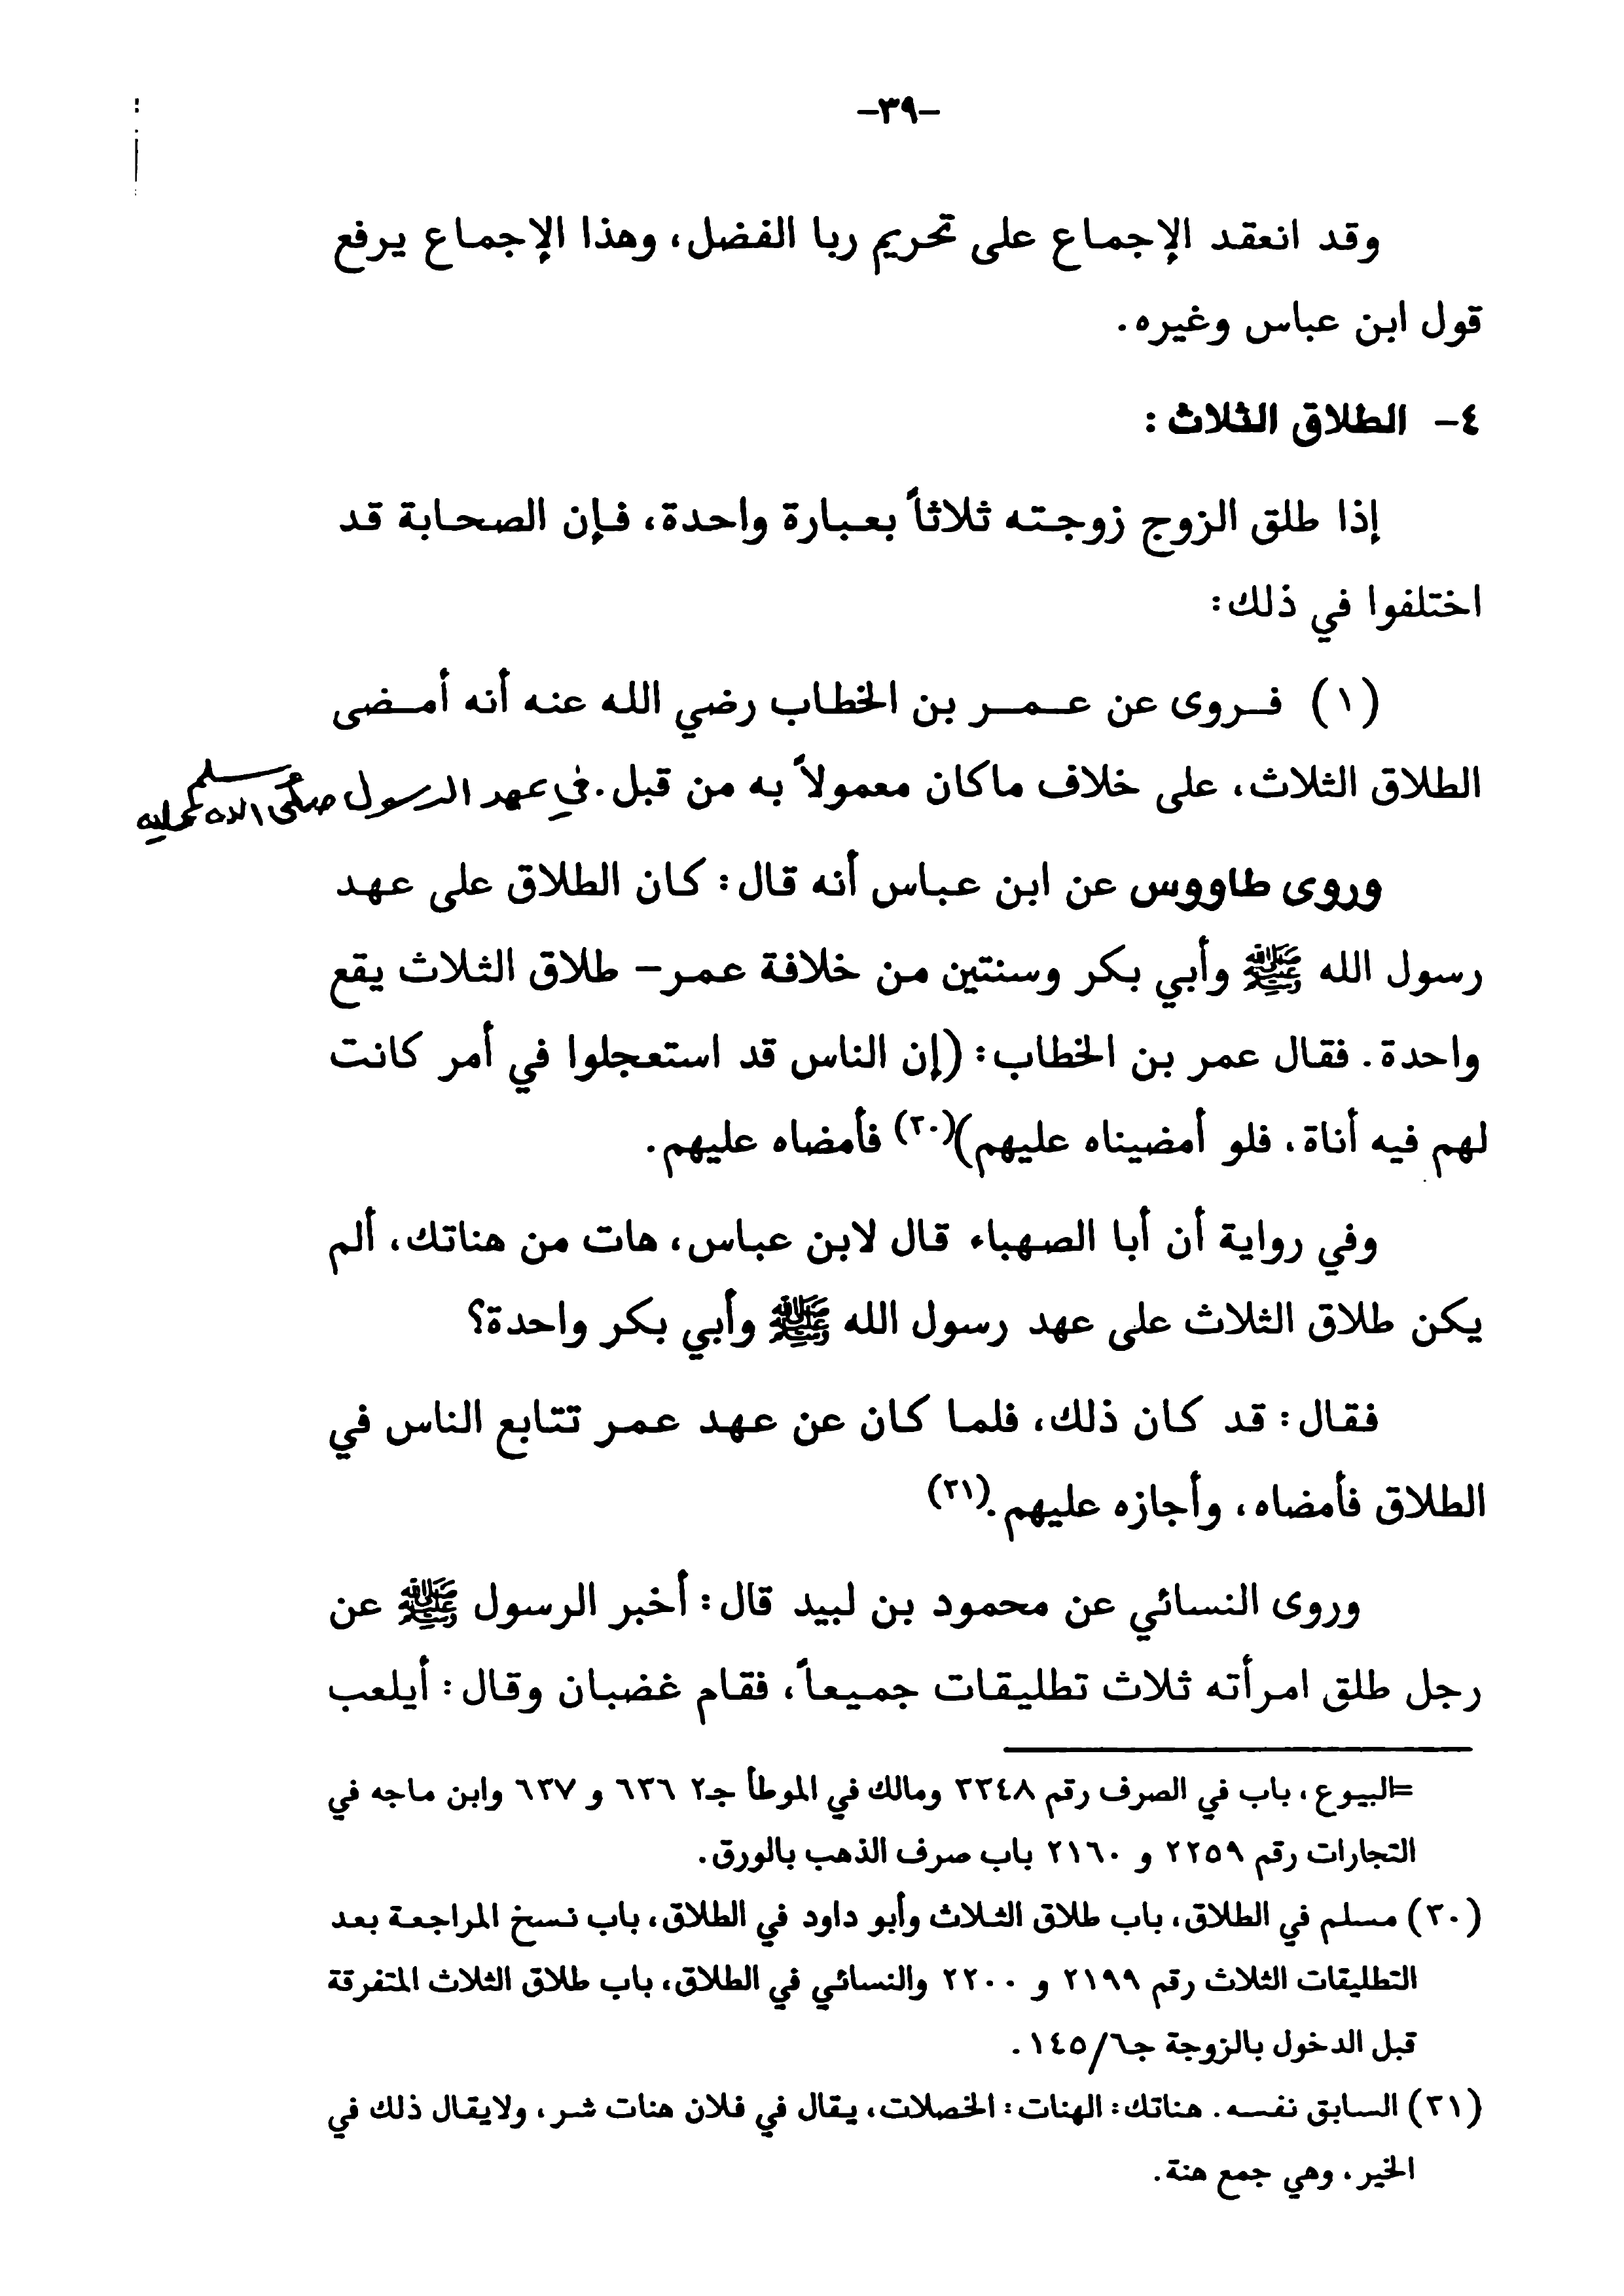 -٣٩-
وقد انعقد الإجماع على تحريم ربا الفضل، وهذا الإجماع يرفع
قول ابن عباس وغيره.
٤- الطلاق الثلاث:
إذا طلق الزوج زوجته ثلاثاً بعبارة واحدة، فإن الصحابة قد
اختلفوا في ذلك:
(١) فروى عن عمر بن الخطاب رضي الله عنه أنه أمضى
الطلاق الثلاث، على خلاف ماكان معمولاً به من قبل. في عهد الرسول صلى الله عليه وسلم
وروى طاووس عن ابن عباس أنه قال: كان الطلاق على عهد
رسول الله ﷺ وأبي بكر وسنتين من خلافة عمر- طلاق الثلاث يقع
واحدة. فقال عمر بن الخطاب: (إن الناس قد استعجلوا في أمر كانت
لهم فيه أناة، فلو أمضيناه عليهم)(٣٠) فأمضاه عليهم.
وفي رواية أن أبا الصهباء قال لابن عباس، هات من هناتك، ألم
يكن طلاق الثلاث على عهد رسول الله ﷺ وأبي بكر واحدة؟
فقال: قد كان ذلك، فلما كان عن عهد عمر تتابع الناس في
الطلاق فأمضاه، وأجازه عليهم.(٣١)
وروى النسائي عن محمود بن لبيد قال: أخبر الرسول ﷺ عن
رجل طلق امرأته ثلاث تطليقات جميعاً، فقام غضبان وقال: أيلعب
=البيوع، باب في الصرف رقم ٣٣٤٨ ومالك في الموطأ جـ٢ ٦٣٦ و ٦٣٧ وابن ماجه في
التجارات رقم ٢٢٥٩ و ٢١٦٠ باب صرف الذهب بالورق.
(٣٠) مسلم في الطلاق، باب طلاق الثلاث وأبو داود في الطلاق، باب نسخ المراجعة بعد
التطليقات الثلاث رقم ٢١٩٩ و ٢٢٠٠ والنسائي في الطلاق، باب طلاق الثلاث المتفرقة
قبل الدخول بالزوجة جـ١٤٥/٦.
(٣١) السابق نفسه. هناتك: الهنات: الخصلات، يقال في فلان هنات شر، ولايقال ذلك في
الخير، وهي جمع هنة.